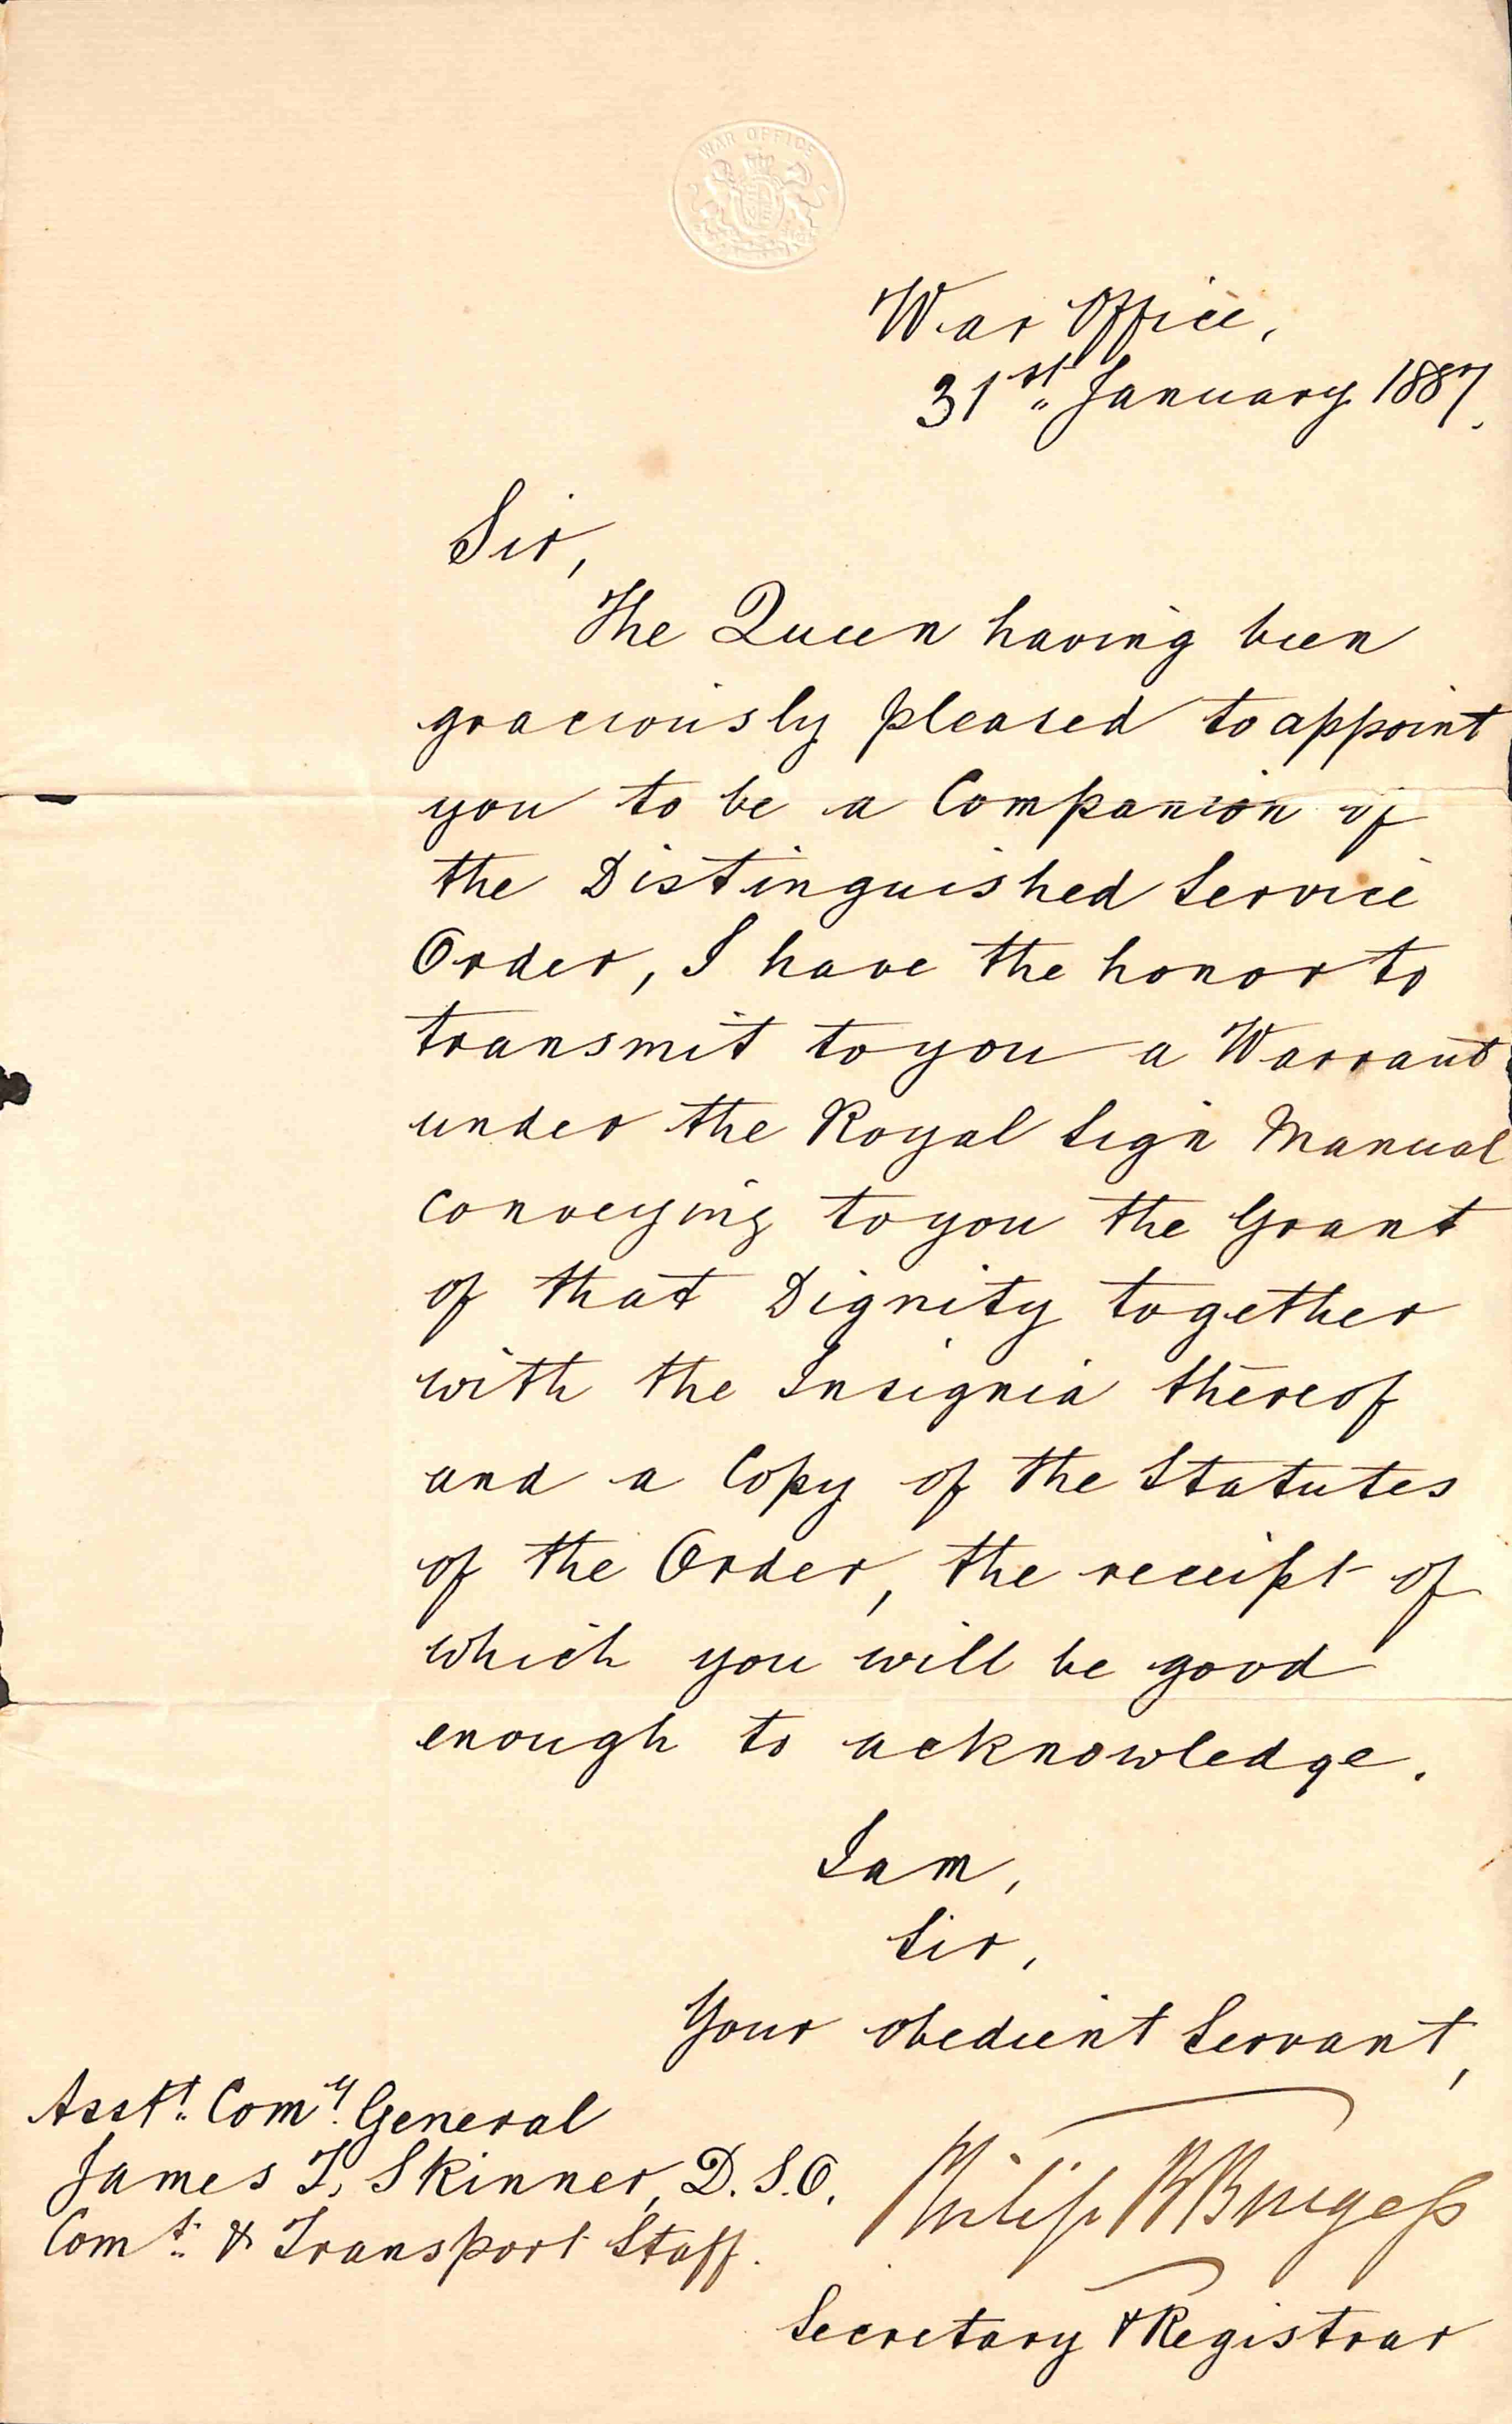 WAR OFFICE
War Office,
31st January 1887.
Sir,
The Queen having been
graciously pleased to appoint
you to be a Companion of
the Distinguished Service
Order, I have the honor to
transmit to you a Warrant
under the Royal Sign Manual
conveying to you the Grant
of that Dignity together
with the Insignia thereof
and a Copy of the Statutes
of the Order, the receipt of
which you will be good
enough to acknowledge.
I am,
Sir,
Your obedient Servant,
Asst. Comy. General
James T. Skinner, D.S.O.
Comt. & Transport Staff.
Philip Burgess
Secretary & Registrar